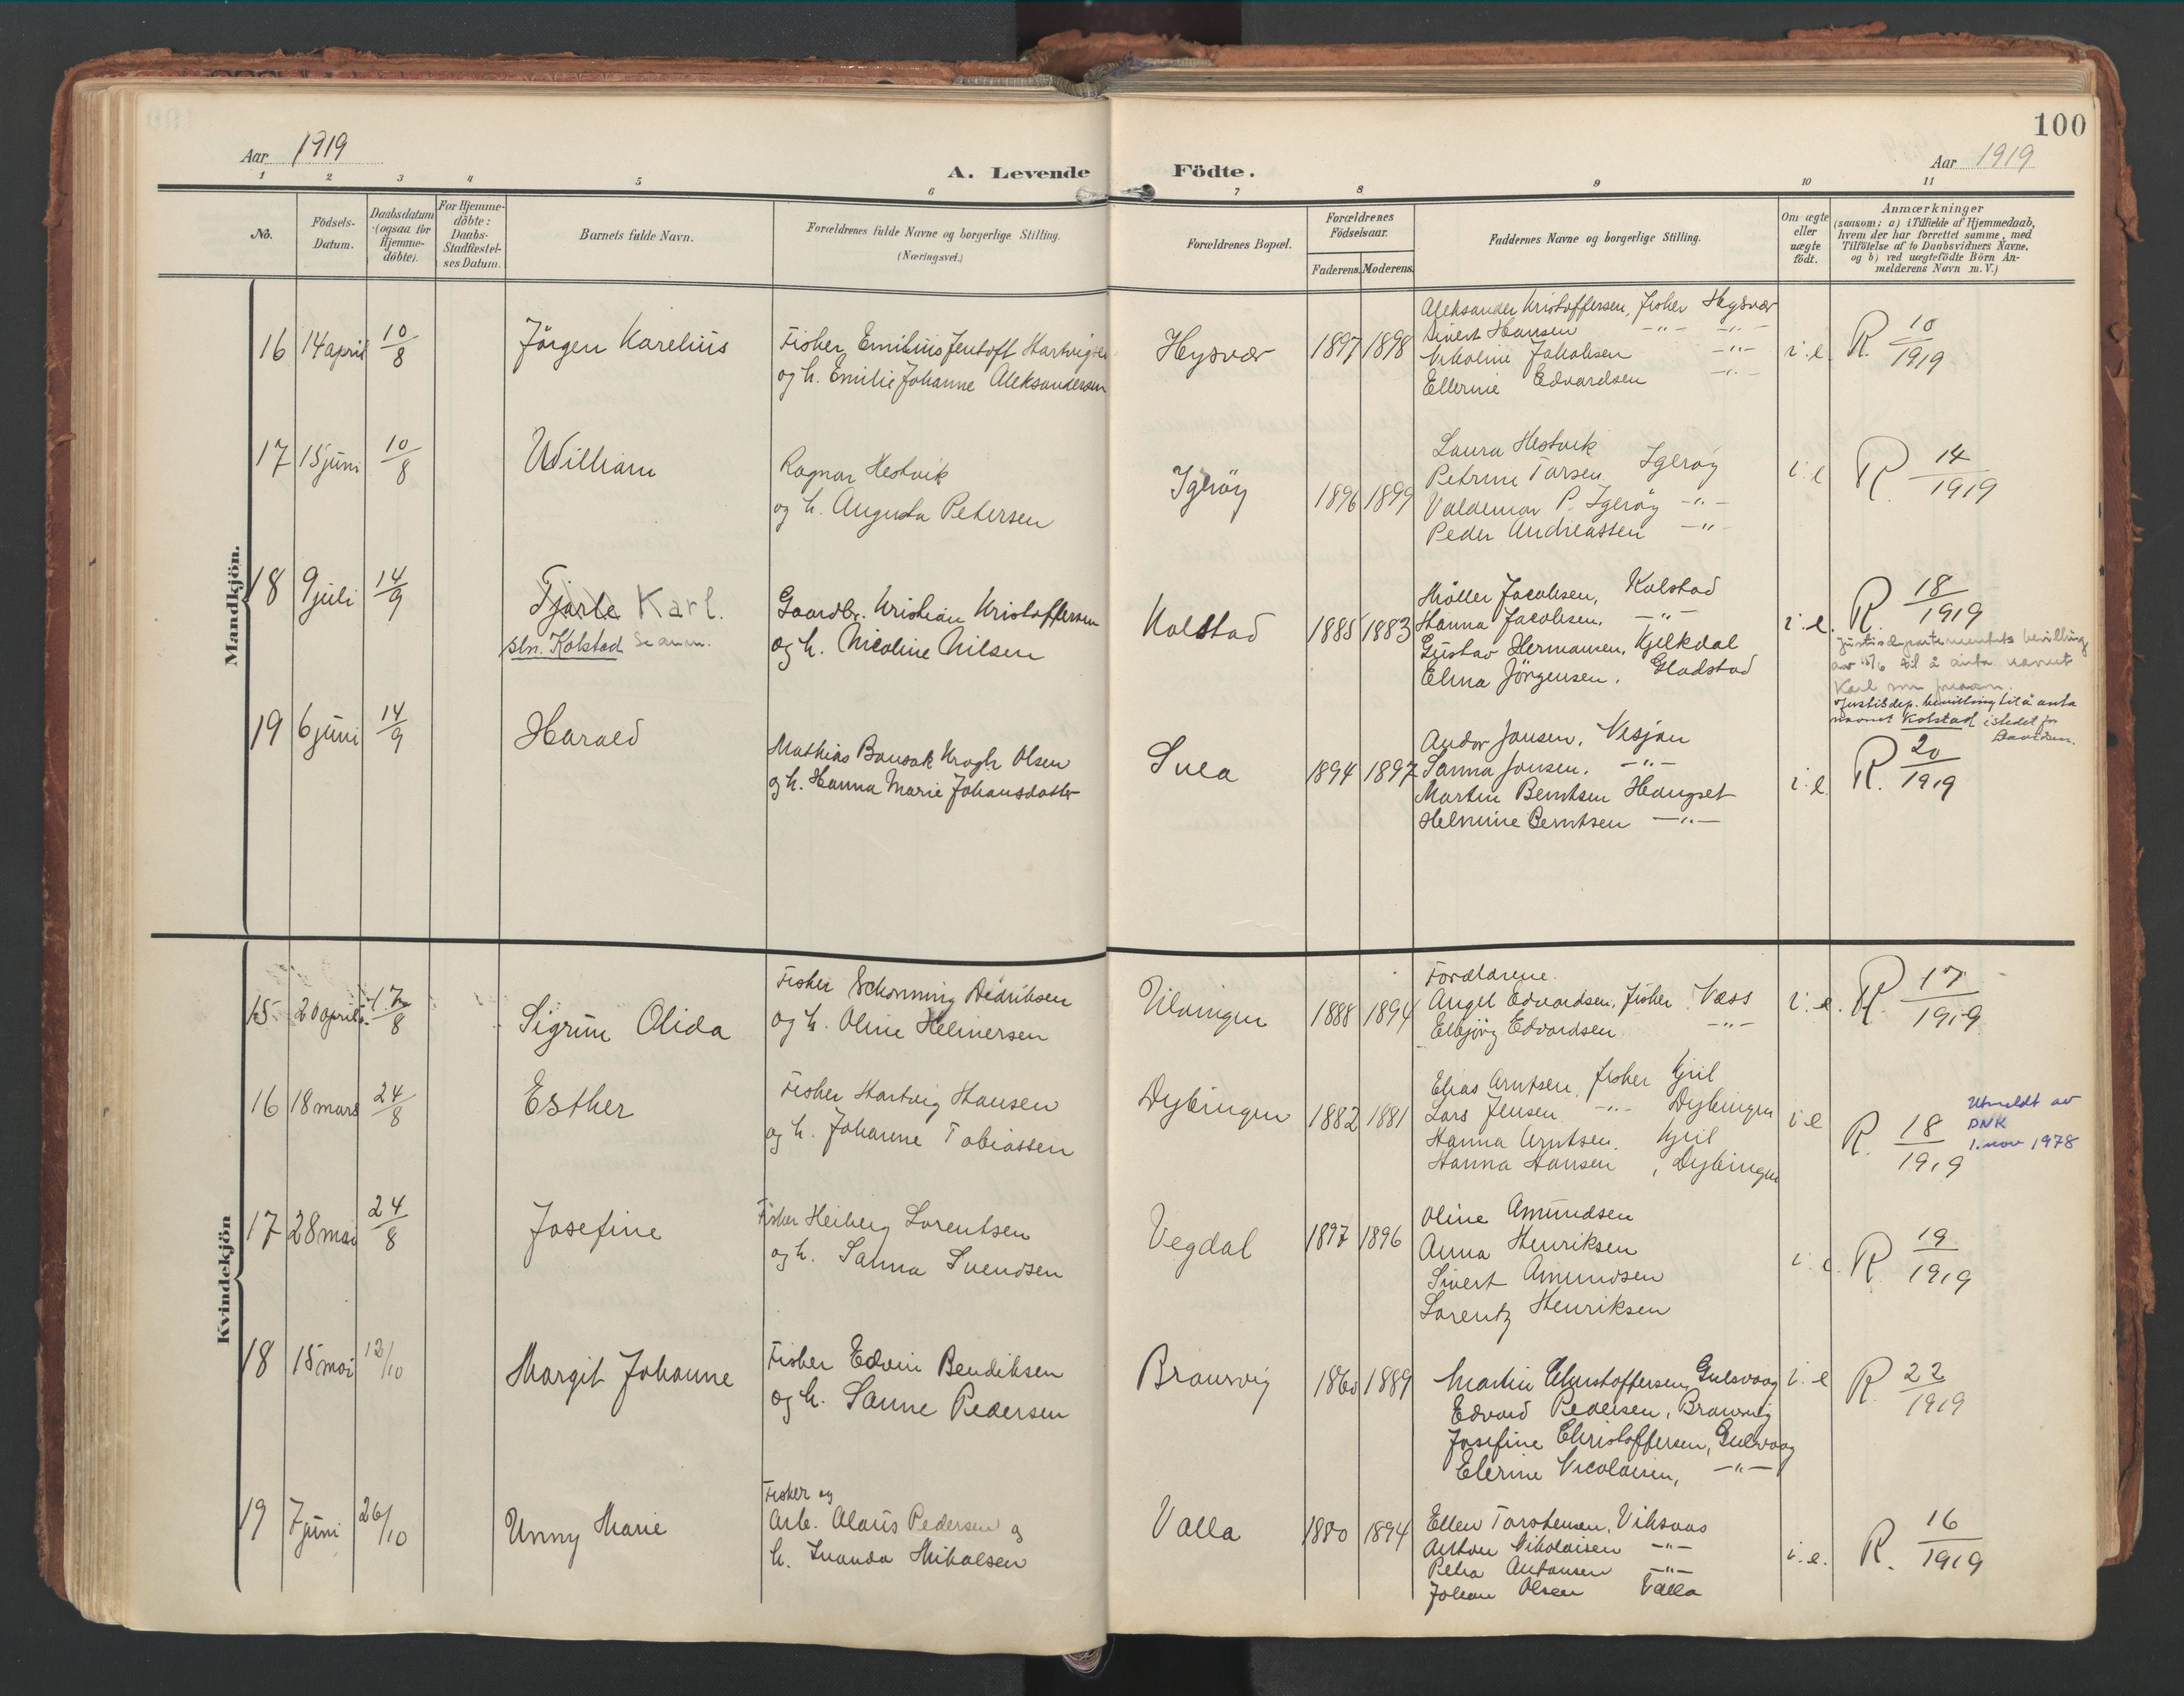 100
Aar 1919
A. Levende Födte.
Aar 1919
1 2 3 4 5 6 7 8 9 10 11
No.
Födsels-
Datum.
Daabsdatum
(ogsaa for
Hjemme-
döbte).
For Hjemme-
döbte:
Daabs-
Stadfæstel-
ses Datum.
Barnets fulde Navn.
Forældrenes fulde Navne og borgerlige Stilling.
(Næringsvei.)
Forældrenes Bopæl.
Forældrenes
Födselsaar.
Faderens. Moderens.
Faddernes Navne og borgerlige Stilling.
Om ægte
eller
uægte
födt.
Anmærkninger
(saasom: a) i Tilfælde af Hjemmedaab,
hvem der har forrettet samme, med
Tilföielse af to Daabsvidners Navne,
og b) ved uægtefödte Börn An-
melderens Navn m. V.)
Mandkjön.
16 14 april 10/8 Jörgen Karelius
Fisker Emilius Jentoft Hartvigsen
og h. Emilie Johanne Aleksandersen
Hysvær 1897 1898
Aleksander Kristoffersen, fisker Hysvær
Sivert Hansen -"- -"-
Nikoline Jakobsen -"-
Ellerine Edvardsen -"-
i. e. R. 10/1919
17 15 juni 10/8 William
Ragnar Hestvik
og h. Augusta Petersen
Igeröy 1896 1899
Laura Hestvik
Petrine Torsen Igeröy
Valdemar P. Igeröy -"-
Peder Andreassen -"-
i. e R. 14/1919
18 9 juli 14/9 Tjarle Karl.
sln. Kolstad
Gaardbr. Kristian Kristoffersen
og h. Nicoline Nilsen
Kolstad 1885 1883
Möller Jacobsen, Kolstad
Hanna Jacobsen, -"-
Gustav Hermansen, Kjelkdal
Elma Jörgensen, Gladstad
i. e. R. 18/1919
Justisdepartementets bevilling
av 15/6 til å anta navnet
Karl som
Justisdep. bevilling til å anta
navnet Kolstad istedet for
19 6 juni 14/9 Harald
Mathias Bonsak Krogh Olsen
og h. Hanna Marie Johansdatter
Sula 1894 1897
Andor Jonsen, Vesjön
Sanna Jonsen, -"-
Martin Berntsen Haugset
Helmine Berntsen -"-
i. e. R. 20/1919
Kvindekjön
15 20 april 17/8 Sigrun Olida
Fisker Schonning Didriksen
og h. Oline Helmersen
Vilvingen 1888 1894
Forældrene.
Angel Edvardsen, fisker Væss
Elbjörg Edvardsen -"-
i. e. R. 17/1919
16 18 mars 24/8 Esther
Fisker Hartvig Hansen
og h. Johanne Tobiassen
Dybingen 1882 1881
Elias Arntsen, fisker Gril
Lars Jensen -"- Dybingen
Hanna Arntsen, Gril
Hanna Hansen, Dybingen
i e R. 18/1919
Utmeldt av
DNK
1. nov 1978
17 28 mai 24/8 Josefine
Fisker Heiberg Lorentsen
og h. Sanna Svendsen
Vegdal 1897 1896
Oline Amundsen
Anna Henriksen
Sivert Amundsen
Lorentz Henriksen
i. e R 19/1919
18 15 mai 12/10 Margit Johanne
Fisker Edvin Bendiksen
og h. Sanne Pedersen
Braurvig 1860 1889
Martin Christoffersen, Gulsvaag
Edvard Pedersen, Braurvig
Josefine Christoffersen, Gulsvaag
Elerine Nicolaisen, -"-
i. e R. 22/1919
19 7 juni 26/10 Unny Marie
Fisker og
Arb. Alaris Pedersen og
h. Ivanda Mikalsen
Valla 1880 1894
Ellen Torstensen, Viksaas
Anton Nikolaisen -"-
Petra Antonsen -"-
Johan Olsen Valla
i. e. R. 16/1919